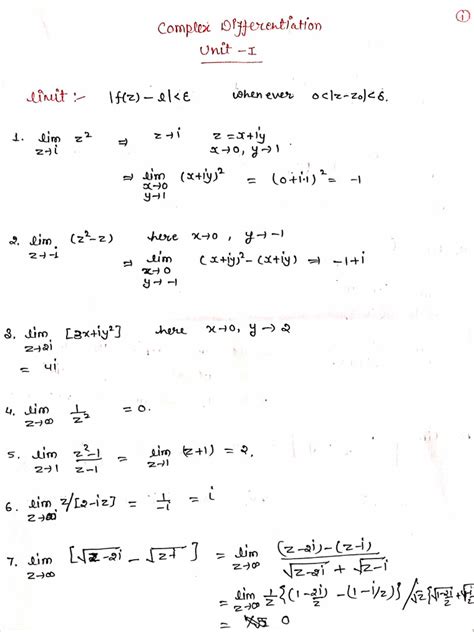 ①
Complex Differentiation
Unit - I
limit :- |f(z) - l| < ε whenever 0<|z-z₀|<δ.
1. lim z→i z² ⇒ z→i z = x+iy
x→0, y→1
⇒ lim x→0 y→1 (x+iy)² = (0+i.1)² = -1
2. lim z→-i (z²-z) here x→0, y→-1
⇒ lim x→0 y→-1 (x+iy)² - (x+iy) ⇒ -1+i
3. lim z→2i [3x+iy²] here x→0, y→2
= 4i
4. lim z→∞ 1/z² = 0.
5. lim z→1 z²-1/z-1 = lim z→1 (z+1) = 2.
6. lim z→∞ z/[2-iz] = 1/-i = i
7. lim z→∞ [√z-2i - √z+i] = lim z→∞ (z-2i)-(z-i)/√z-2i + √z-i
= lim z→∞ 1/z {(1-2i/z) - (1-i/z)} /√z{√1-2i/z +
= 0